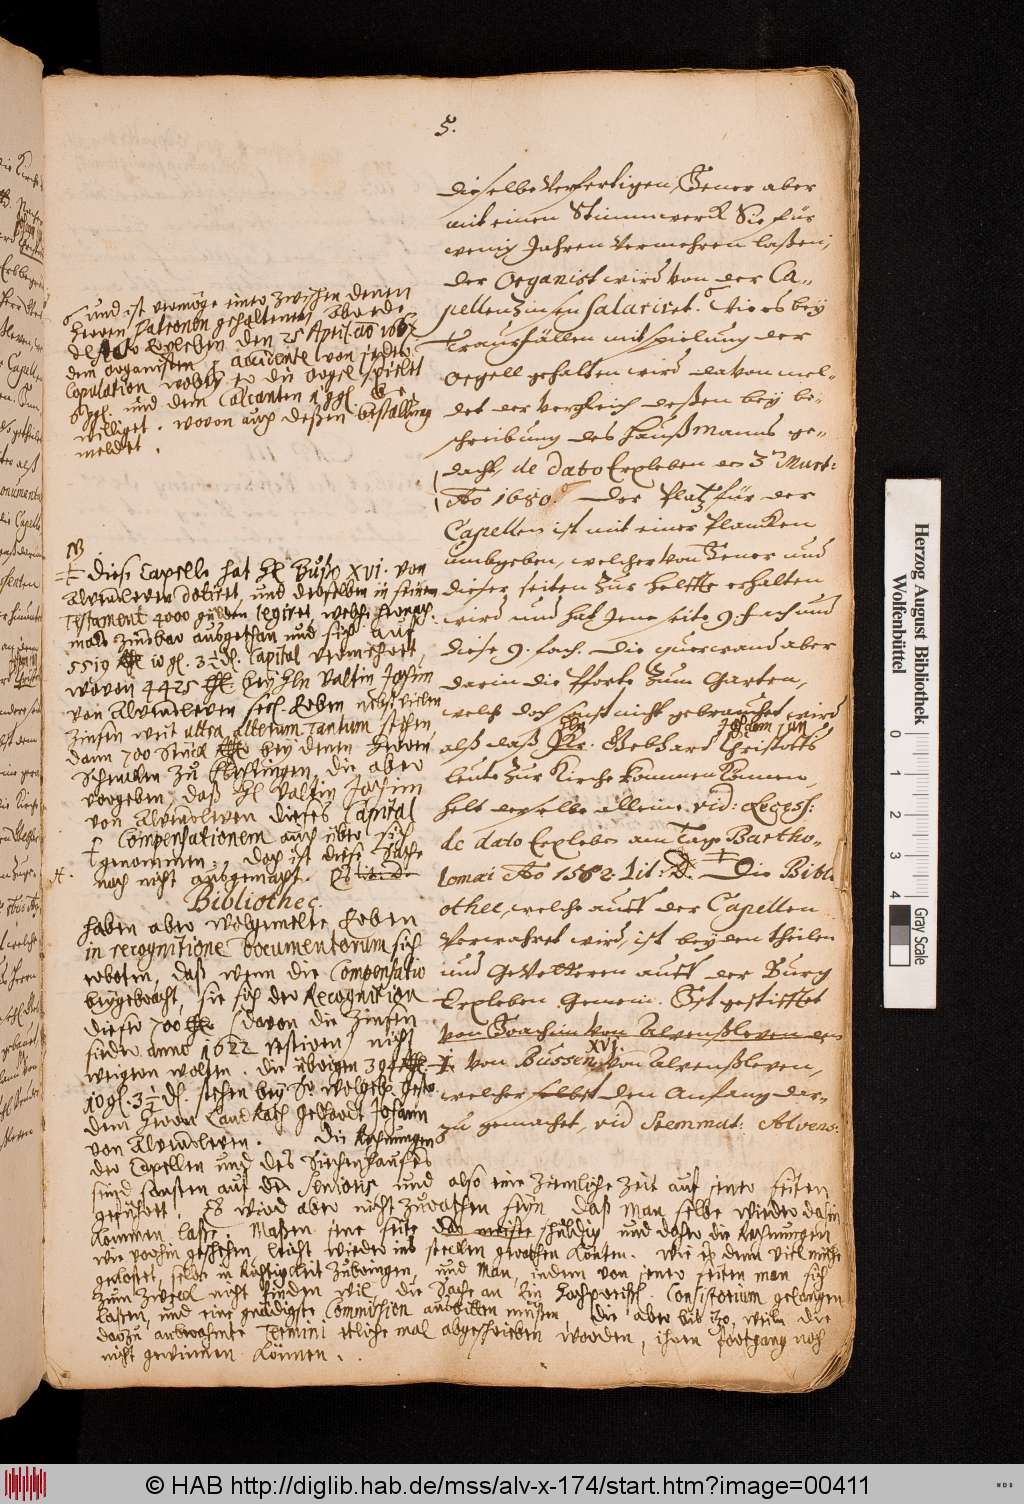 5.
dieselbe verfertigen, Jener aber
mit einen Stimmwerck Sie für
wenig Jahren vermehren laßen,
der Organist wird von der Ca-
pellen Zinsen salariret. Wie es bey
Trauerfällen mit spielung der
Orgell gehalten wird davon mel-
det der vergleich deßen bey be-
schreibung des Haußmanns ge-
dacht, de dato Erxleben den 3 Mart:
Ao 1680. Der Platz für der
Capellen ist mit einer Plancken
umbgeben, welcher von Jener und
dieser seiten zur helffte erhalten
wird und hat Jene seite 9. fach und
diese 9. fach. Die querwand aber
darin die Pforte zum Garten,
welche doch sonst nicht gebrauchet wird
alß daß Hr. Gebhard Christoffs
von
Johann
leute zur Kirche kommen können,
helt derselbe alleine. vid: Recess:
de dato Erxleben am Tage Bartho-
lomæi Ao 1582. Lit: D. Die Bibli-
othec, welche auff der Capellen
verwahret wird, ist beyden theilen
und Gevetteren auff der Burg
Erxleben gemein. Ist gestifftet
von Joachim von Alvenßleven den
XVI
I. von Bussen von Alvenßleven,
welcher selbst den Anfang dar-
zu gemachet, vid Stemmat: Alvens:
und ist vermöge eines zwischen denen
Herren Patronen gehaltenen Abrede
de dato Erxleben den 25 April. ao 1667
dem organisten accidente von jeder
Copulation wobey er die orgel spielet
ggl. und dem Calcanten 1 ggl. be
williget. wovon auch deßen bestallung
meldet.
NB
Diese Capelle hat H. Bußo XVI. von
Alvensleven dotiret, und derselben in seinem
Testament 4000 gülden legiret, welche hernach-
mals zinsbar ausgethan und sich auf
5519 10 gl. 3½ d. Capital vermehret,
wovon 4425 bey Hln Valtin Jochim
von Alvensleven sehl. Erben nebst vielen
zinsen weit ultra alterum tantum stehen,
dann 700 Stück bey denen Herren
Schencken zu Flechtingen, die aber
vorgeben, daß H. Valtin Jochim
von Alvensleven dieses Capital
Compensationem auch über sich
genommen; doch ist diese Sache
noch nicht ausgemacht.
Bibliothec.
haben aber wolgemelte Erben
in recognitione Documentorum sich
erboten, daß wenn die Compensatio
beygebracht, sie sich der Recognition
dieser 700 (davon die Zinsen
sieder anno 1622 restiren) nicht
weigern wolten. Die übrigen 394
10 gl. 3½ d. stehen bey Jr Wolgeb. Gestr.
dem Herrn Land Rath Gebhardt Johann
von Alvensleven. Die Rechnungen
der Capellen und des Siechenhauses
sind sonsten auf der Senioris und also eine ziemliche Zeit auf jener seiten
geführet. Es wird aber nicht zurathen seyn, daß man selbe wieder dahin
kommen lasse. Maßen jene seite das meiste schuldig und daher die Rechnungen
wie vorhin geschehen, leicht wieder ins stecken gerathen könten. Wie es denn viel mühe
gekostet, selbe in Richtigkeit zubringen, und man, indem von jener seiten man sich
zum zweck nicht finden wil, die Sache an Ein Hochpreisl. Consistorium gelangen
lassen, und eine gnädigste Commission ausbitten müßen, die aber bis izo, weiln die
darzu anberahmte Termini etliche mal abgeschrieben worden, ihren fortgang noch
nicht gewinnen können.
Herzog August Bibliothek
Wolfenbüttel
0 1 2 3 4
Gray Scale
© HAB http://diglib.hab.de/mss/alv-x-174/start.htm?image=00411